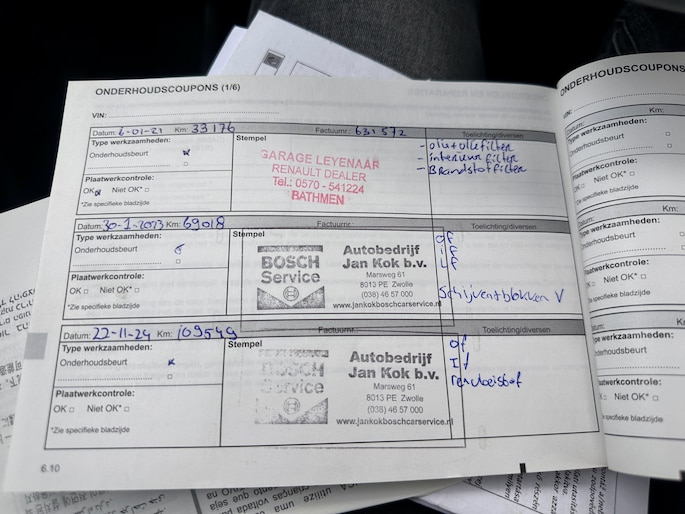 ONDERHOUDSCOUPONS (1/6)
VIN:
Datum: 6-01-21 Km: 33176 Factuurnr.: 631572 Toelichting/diversen
Type werkzaamheden:
Onderhoudsbeurt
Plaatwerkcontrole:
OK Niet OK*
*Zie specifieke bladzijde
Stempel
GARAGE LEYENAAR
RENAULT DEALER
Tel.: 0570 - 541224
BATHMEN
- interieurfilter
- Brandstoffilter
Datum: 30-1-2023 Km: 69018 Factuurnr. Toelichting/diversen
Type werkzaamheden:
Onderhoudsbeurt
Plaatwerkcontrole:
OK Niet OK*
*Zie specifieke bladzijde
Stempel
BOSCH
Service
Autobedrijf
Jan Kok b.v.
Marsweg 61
8013 PE Zwolle
(038) 46 57 000
www.jankokboschcarservice.nl
of
if
Schijven+blokken V
Datum: 22-11-24 Km: 109549 Factuurnr.: Toelichting/diversen
Type werkzaamheden:
Onderhoudsbeurt
Plaatwerkcontrole:
OK Niet OK*
*Zie specifieke bladzijde
Stempel
BOSCH
Service
Autobedrijf
Jan Kok b.v.
Marsweg 61
8013 PE Zwolle
(038) 46 57 000
www.jankokboschcarservice.nl
Of
If
remvloeistof
6.10
ONDERHOUDSCOUPONS
VIN:
Datum: Km:
Type werkzaamheden:
Onderhoudsbeurt
Plaatwerkcontrole:
OK Niet OK*
*Zie specifieke bladzijde
Datum: Km:
Type werkzaamheden:
Onderhoudsbeurt
Plaatwerkcontrole:
OK Niet OK*
*Zie specifieke bladzijde
Datum: Km:
Type werkzaamheden:
Onderhoudsbeurt
Plaatwerkcontrole:
OK Niet OK*
*Zie specifieke